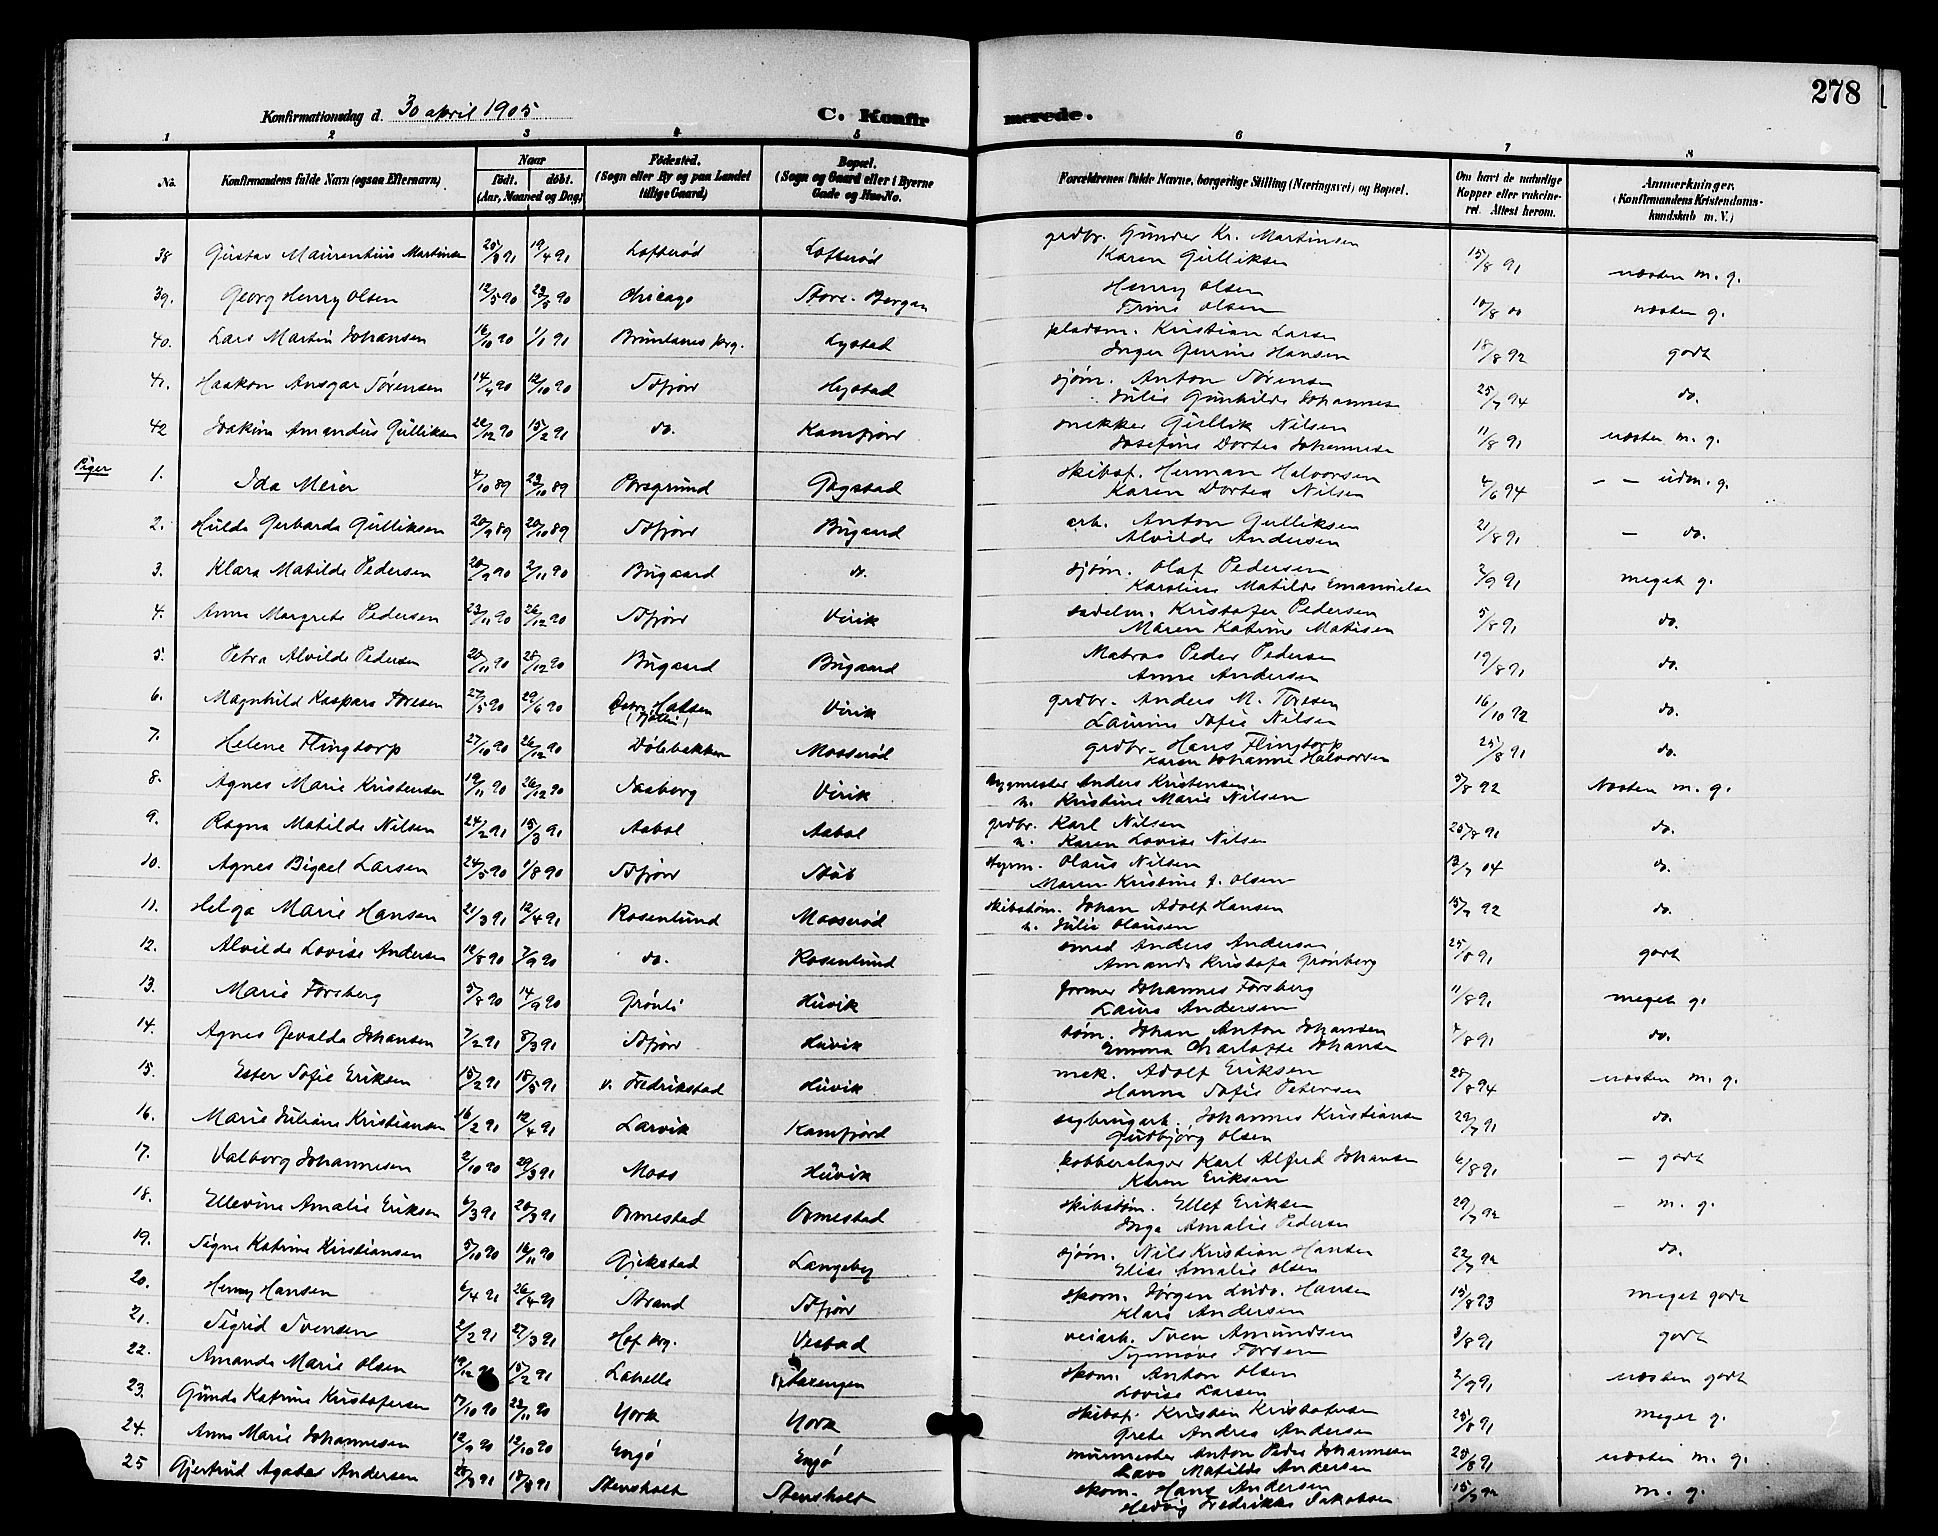 278
Konfirmationsdag d. 30 april 1905 C. Konfirmerede.
1 2 3 4 5 6 7 8
No. Konfirmandens fulde Navn (ogsaa Efternavn) Naar født. døbt. (Aar, Maaned og Dag) Fødested. (Sogn eller By og paa Landet tillige Gaard) Bopæl. (Sogn og Gaard eller i Byerne Gade og Hus-No. Forældrenes fulde Navne, borgerlige Stilling (Næringsvei) og Bopæl. Om havt de naturlige Kopper eller vakcineret. Attest herom. Anmærkninger. (Konfirmandens Kristendomskundskab m. V.)
38 Gustav Maurentius Martinsen 25/3 91 19/4 91 Lofterød Lofterød grdbr. Gunder Kr. Martinsen Karen Gulliksen 15/8 91 næsten m. g.
39. Georg Henry Olsen 12/5 90 Chicago Store-Bergan Henry Olsen Trine Olsen 10/8 00 næsten g.
40. Lars Martin Johansen 16/10 90 1/1 91 Brunlanes prg. Lystad pladsm. Kristian Larsen Inger Gurine Hansen 18/8 92 godt
41. Haakon Ansgar Sørensen 14/9 90 12/10 90 Sdfjord Hystad sjøm. Anton Sørensen Julie Gunhilde Johannesen 25/7 94 do.
42 Joakim Amandus Gulliksen 22/12 90 15/2 91 do. Kamfjord snekker Gullik Nilsen Josefine Dortea Johannesen 11/8 91 næsten m. g.
Piger
1. Ida Meier 4/10 89 23/10 89 Porsgrund Gogstad skibsf. Herman Halvorsen Karen Dortea Nilsen 4/6 94 – – udm. g.
2. Hulda Gerharda Gulliksen 20/9 89 20/10 89 Sdfjord Bugaard arb. Anton Gulliksen Alvilde Andersen 21/8 91 – do.
3. Klara Matilde Pedersen 20/9 90 2/11 90 Bugaard do. sjøm. Olaf Pedersen Karoline Matilde Emanuelsen 2/9 91 meget g.
4. Anna Margrete Pedersen 23/11 90 26/12 90 Sdfjord Virik sadelm. Kristofer Pedersen Maren Katrine Matisen 5/8 91 do.
5. Petra Alvilde Pedersen 20/11 90 28/12 90 Bugaard Bugaard Matros Peder Pedersen Anne Andersen 19/8 91 do.
6. Magnhild Kaspara Toresen 27/5 90 29/6 90 (Tjølling) Virik grdbr. Anders M. Toresen Laurine Sofie Nilsen 16/10 92 do.
7. Helene Flingtorp 27/10 90 26/12 90 Dølebakken Mosserød grdbr. Hans Flingtorp Karen Johanne Halvorsen 25/8 91 do.
8. Agnes Marie Kristensen 19/11 90 26/12 90 Jaaberg Virik bygmester Anders Kristensen Kristine Marie Nilsen 5/8 92 Næsten m. g.
9. Ragna Matilde Nilsen 24/2 91 15/3 91 Aabol Aabol grdbr. Karl Nilsen Karen Lovise Nilsen 25/8 91 do.
10. Agnes Bigael Larsen 24/5 90 1/8 90 Sdfjord Støb styrm. Olaus Nilsen Maren Kristine J. Olsen 12/7 04 do.
11. Helga Marie Hansen 21/3 91 12/4 91 Rosenlund Mosserød skibstøm. Johan Adolf Hansen Julie Olausen 15/7 92 do.
12. Alvilde Lovise Andersen 12/8 90 7/9 90 do. Rosenlund smed Anders Andersen Amanda Kristofa Grønberg 25/8 91 godt
13. Marie Forsberg 5/8 90 14/9 90 Grønli Huvik former Johannes Forsberg Laura Andersen 11/8 91 meget g.
14. Agnes Gevalda Johansen 7/2 91 8/3 91 Sdfjord Huvik tøm. Johan Anton Johansen Emma Charlotte Johansen 4/8 91 do.
15. Ester Sofie Eriksen 15/2 91 18/5 91 v. Fredrikstad Huvik mek. Adolf Eriksen Hanna Sofie Petersen 28/8 94 næsten m. g.
16. Marie Juliane Kristiansen 16/2 91 12/4 91 Larvik Kamfjord sagbrugarb. Johannes Kristiansen Gudbjørg Olsen 29/7 91 do.
17. Valborg Johannesen 2/10 90 29/3 91 Moss Huvik kobberslager Karl Alfred Johansen Karen Eriksen 6/8 91 – godt
18. Ellevine Amalie Eriksen 6/3 91 Ormestad Ormestad skibstøm. Ellef Eriksen Inga Amalie Pedersen 29/7 92 – m. g.
19. Signe Katrine Kristiansen 5/10 90 16/11 90 Gjekstad Langeby sjøm. Nils Kristian Hansen Elise Amalie Olsen 22/7 92 do.
20. Henny Hansen 6/4 91 26/4 91 Strand Sdfjord skom. Jørgen Ludv. Hansen Klara Andersen 15/8 93 meget godt
21. Sigrid Svensen 2/2 91 27/3 91 Hof prg. Vestad veiarb. Sven Amundsen Synnøve Torsen 3/8 91 godt
22. Amanda Marie Olsen 15/2 91 Lahelle skom. Anton Olsen Lovise Larsen 2/9 91 næsten godt
23. Gunda Katrine Kristofersen 17/10 90 23/11 90 York York skibsf. Kristen Kristofersen Grete Andrea Andersen 25/8 91 meget g.
24. Anna Marie Johannesen 12/9 90 12/10 90 Engø Engø murmester Anton Peder Johannesen Matilde Andersen 25/8 91 næsten m. g.
25 Gjertrud Agate Andersen Stensholt Stensholt skom. Hans Andersen Hedvig Fredrikke Jakobsen 15/7 92 m. g.